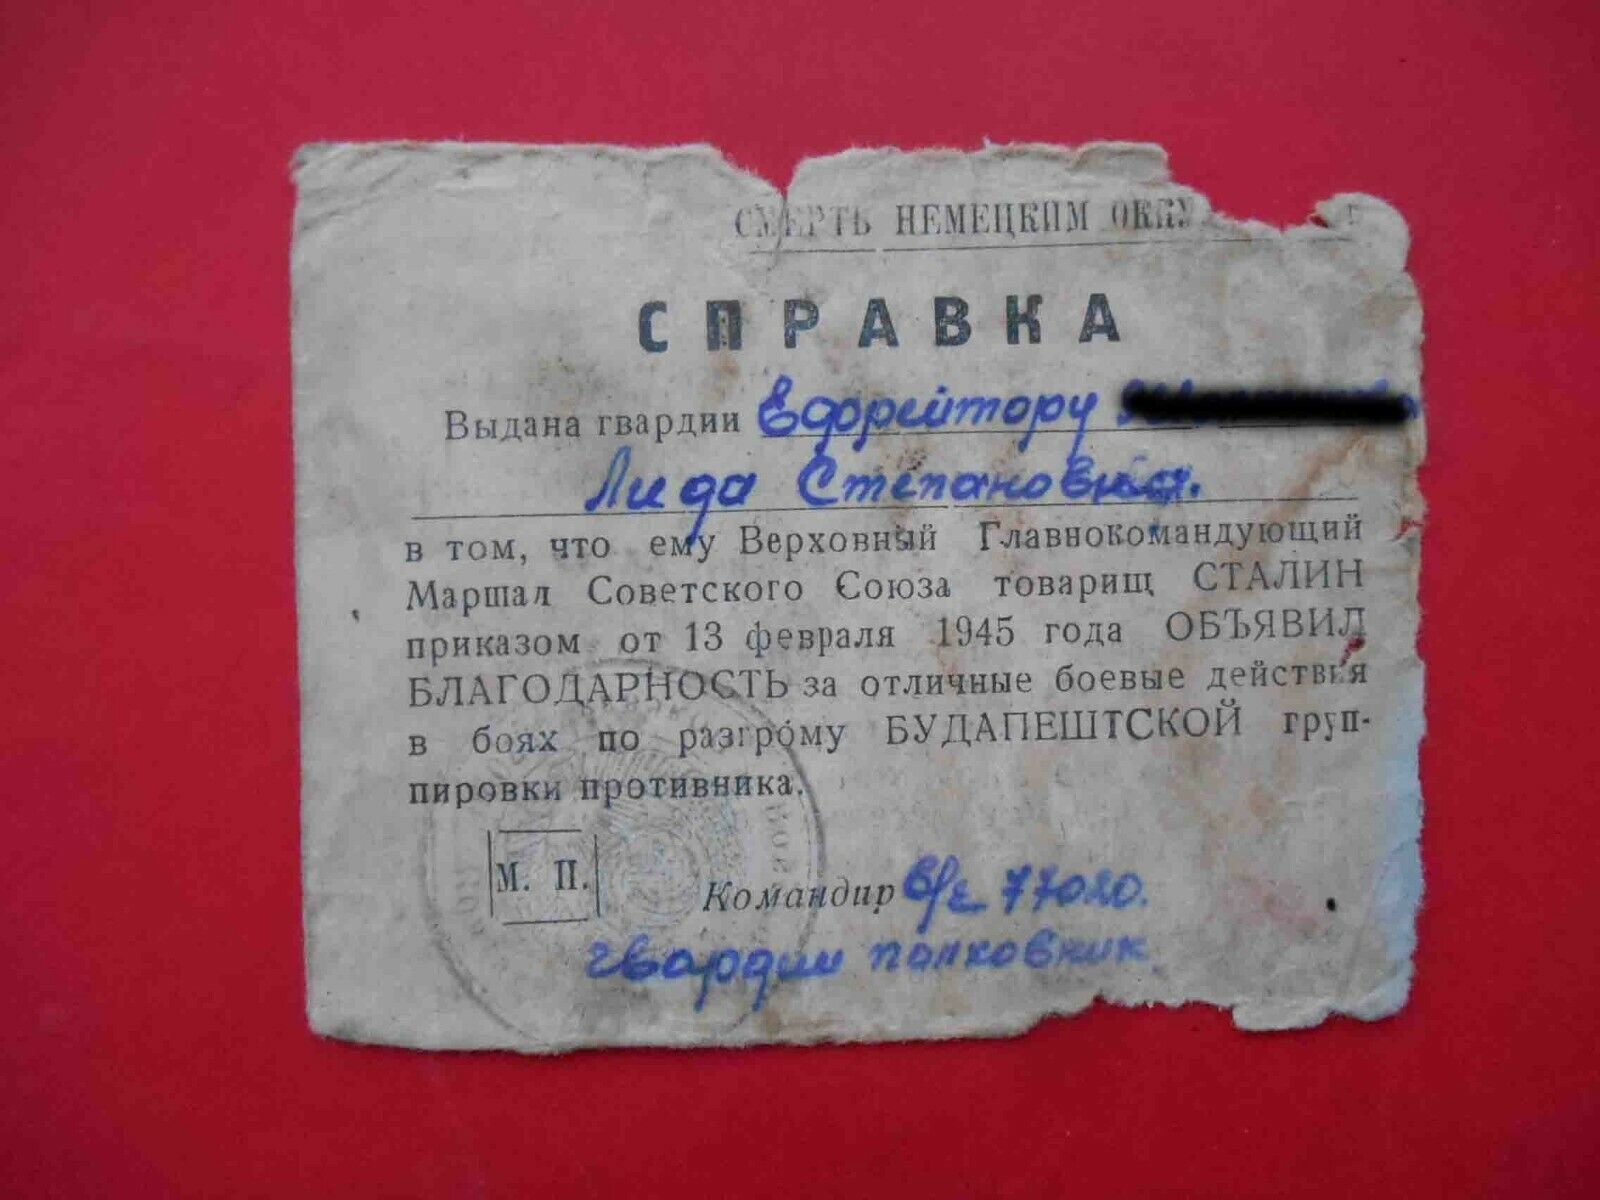 СМЕРТЬ НЕМЕЦКИМ ОККУ
СПРАВКА
Выдана гвардии Ефрейтору
Лида Степановна.
в том, что ему Верховный Главнокомандующий
Маршал Советского Союза товарищ СТАЛИН
приказом от 13 февраля 1945 года ОБЪЯВИЛ
БЛАГОДАРНОСТЬ за отличные боевые действия
в боях по разгрому БУДАПЕШТСКОЙ груп-
пировки противника.
М. П.
Командир в/ч 77020.
гвардии полковник